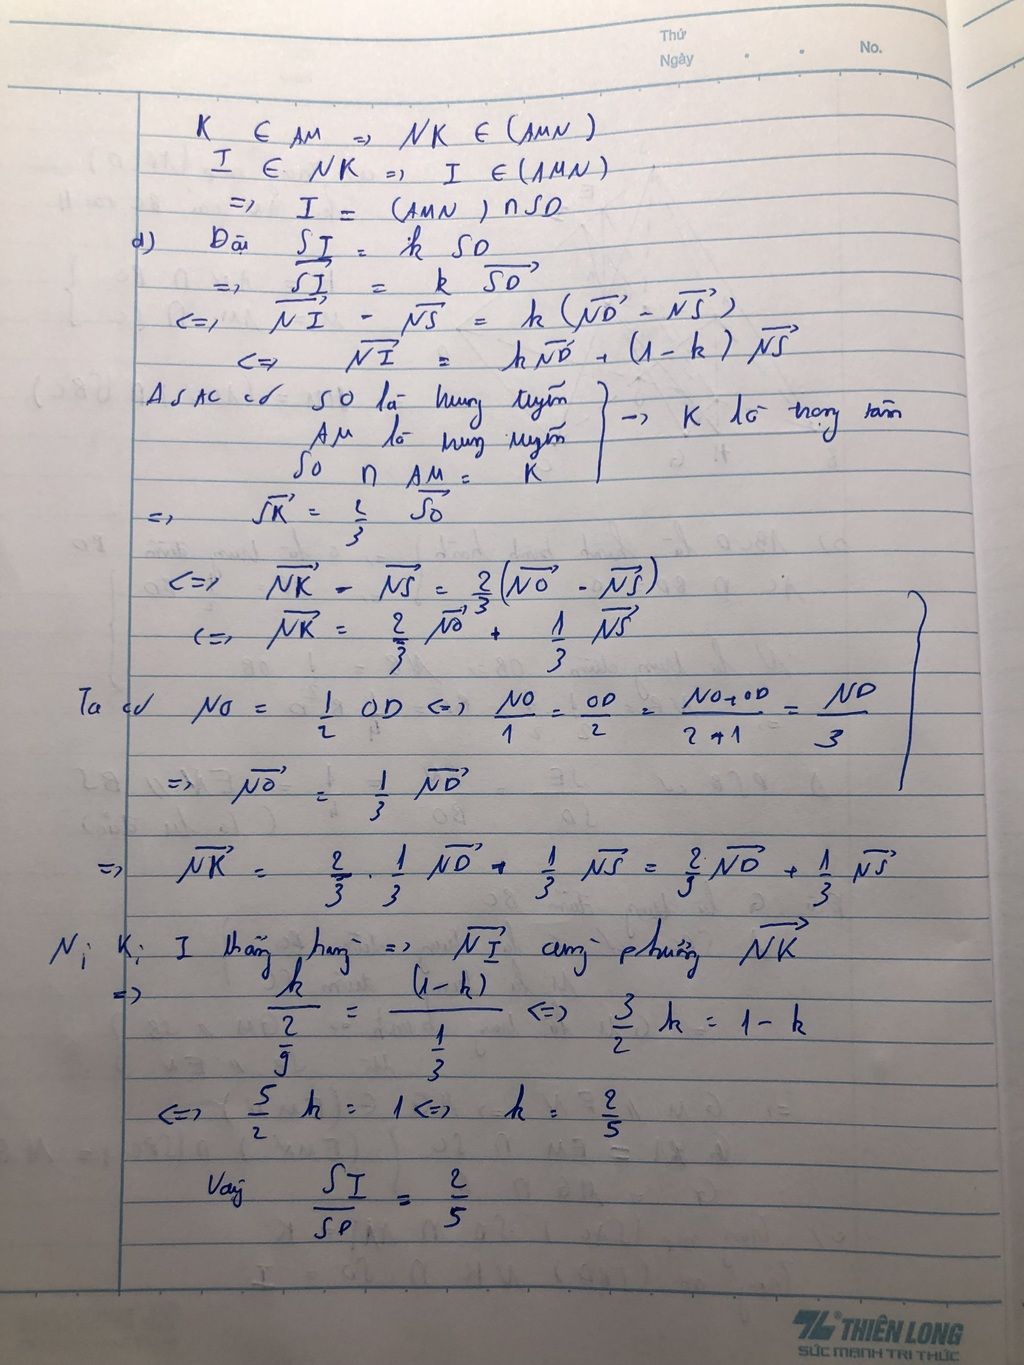 Thứ
Ngày . . No.
K ∈ AM => NK ∈ (AMN)
I ∈ NK => I ∈ (AMN)
=> I = (AMN) ∩ SD
d) Đặt SI = k SD
=> \overrightarrow{SI} = k \overrightarrow{SD}
<=> \overrightarrow{NI} - \overrightarrow{NS} = k (\overrightarrow{ND} - \overrightarrow{NS})
<=> \overrightarrow{NI} = k \overrightarrow{ND} + (1-k) \overrightarrow{NS}
ΔSAC có SO là trung tuyến
AM là trung tuyến
SO ∩ AM = K
} -> K là trọng tâm
=> \overrightarrow{SK} = \frac{2}{3} \overrightarrow{SO}
<=> \overrightarrow{NK} - \overrightarrow{NS} = \frac{2}{3} (\overrightarrow{NO} - \overrightarrow{NS})
<=> \overrightarrow{NK} = \frac{2}{3} \overrightarrow{NO} + \frac{1}{3} \overrightarrow{NS}
Ta có NO = \frac{1}{2} OD <=> \frac{NO}{1} = \frac{OD}{2} = \frac{NO+OD}{2+1} = \frac{ND}{3}
=> \overrightarrow{NO} = \frac{1}{3} \overrightarrow{ND}
=> \overrightarrow{NK} = \frac{2}{3} . \frac{1}{3} \overrightarrow{ND} + \frac{1}{3} \overrightarrow{NS} = \frac{2}{9} \overrightarrow{ND} + \frac{1}{3} \overrightarrow{NS}
N; K; I thẳng hàng => \overrightarrow{NI} cùng phương \overrightarrow{NK}
=> \frac{k}{\frac{2}{9}} = \frac{(1-k)}{\frac{1}{3}} <=> \frac{3}{2} k = 1 - k
<=> \frac{5}{2} k = 1 <=> k = \frac{2}{5}
Vậy \frac{SI}{SD} = \frac{2}{5}
THIÊN LONG
SỨC MẠNH TRI THỨC